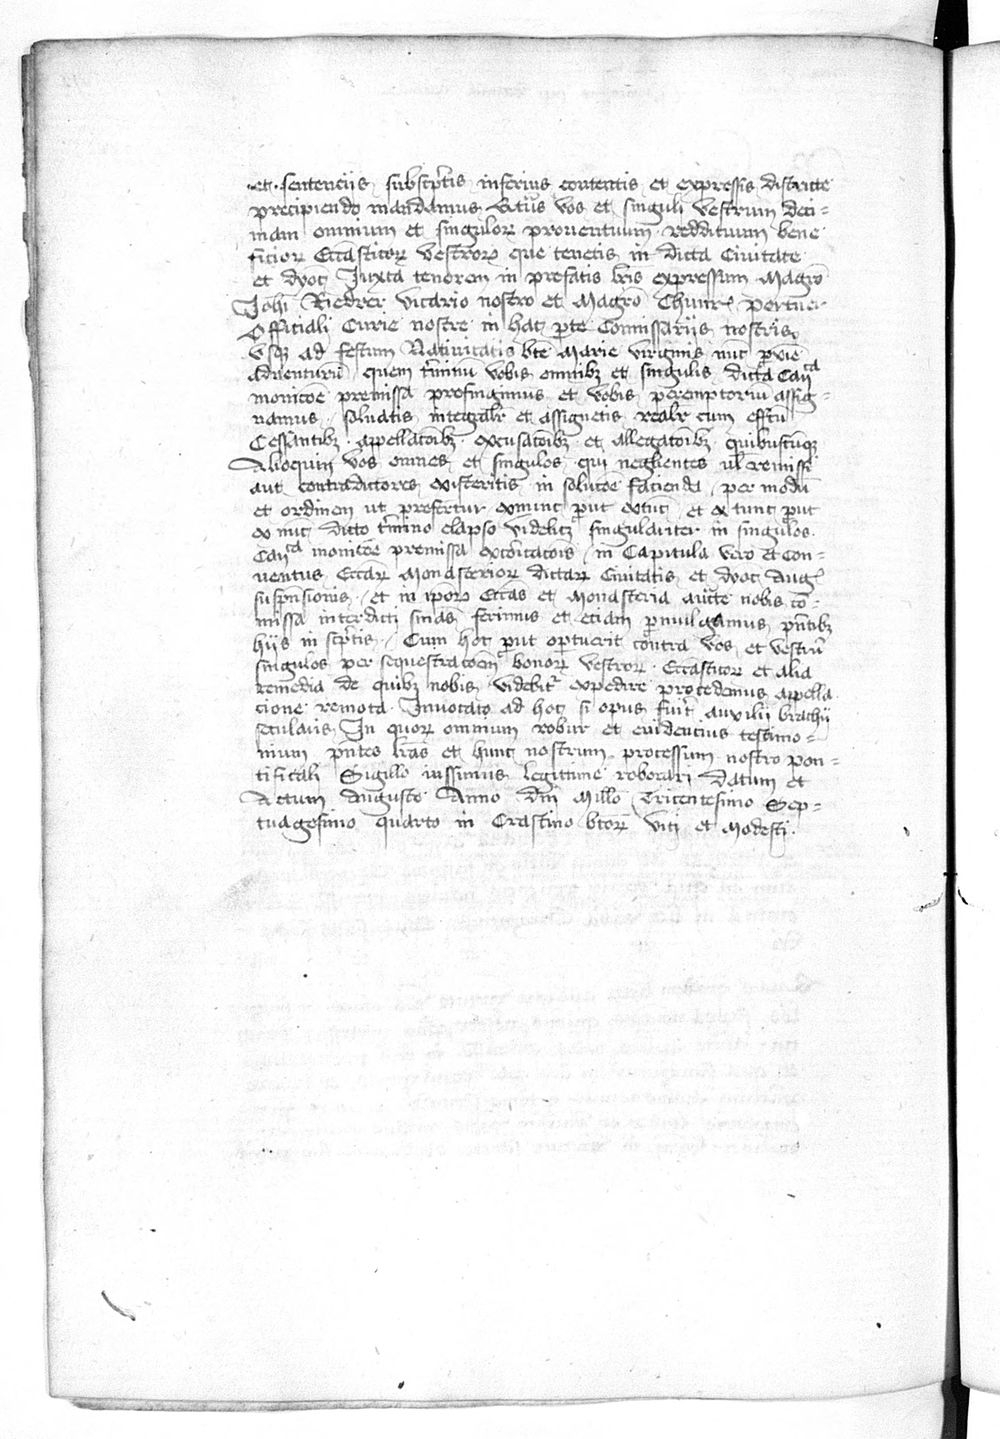 et sentenciis subscptis inferius contentis et expressis districte
precipiendo mandamus vos et singuli vestrum deci=
mam omnium et singulor prouentuum reddituum bene
ficior Eccasticor vestror que tenetis in dicta Ciuitate
et dyoc Juxta tenorem in prefatis lris expressum Magro
Johi Riedrer vicario nostro et Magro
Officiali Curie nostre in hac pte Comissariis nostris
vsq ad festum Natiuitatis bte Marie virginis nuc pxie
aduenturu quem tminu vobis omnibz et singulis dicta Canca
monicoe premissa prefingimus et vobis peremptoriu assig=
namus soluatis integralr et assignetis realr cum effcu
Cessantibz appellacoibz excusacoibz et allegacoibz quibuscuqz
Alioquin vos omnes et singulos qui neglientes ul remissi
aut contradictores extiteritis in solucoe facienda per modu
et ordinem ut prefertur exnunc put extuc et ex tunc put
ex nuc dicto tmino elapso videlicz singulariter in singulos
Canca monicoe premissa excoicacois in Capitula vero et Con=
uentus Eccar Monasterior dictar Ciuitatis et dyoc Aug
suspensionis et in ipor Eccas et Monasteria aucte nobis co=
missa interdicti snias ferimus et eciam pmulgamus pntibz
hiis in scptis Cum hoc put oportuerit contra vos et vestru
singulos per sequestracoem bonor vestror Eccasticor et alia
remedia de quibz nobis videbit expedire procedemus appella
cione remota Inuocato ad hoc si opus fuit auxilii brachij
secularis In quor omnium robur et euidencius testimo=
nium pntes lras et hunc nostrum processum nostro pon=
tificali Sigillo iussimus legittime roborari Datum et
Actum Auguste Anno Dni Millo Tricentesimo Sep=
tuagesimo quarto in Crastino btor Viti et Modesti